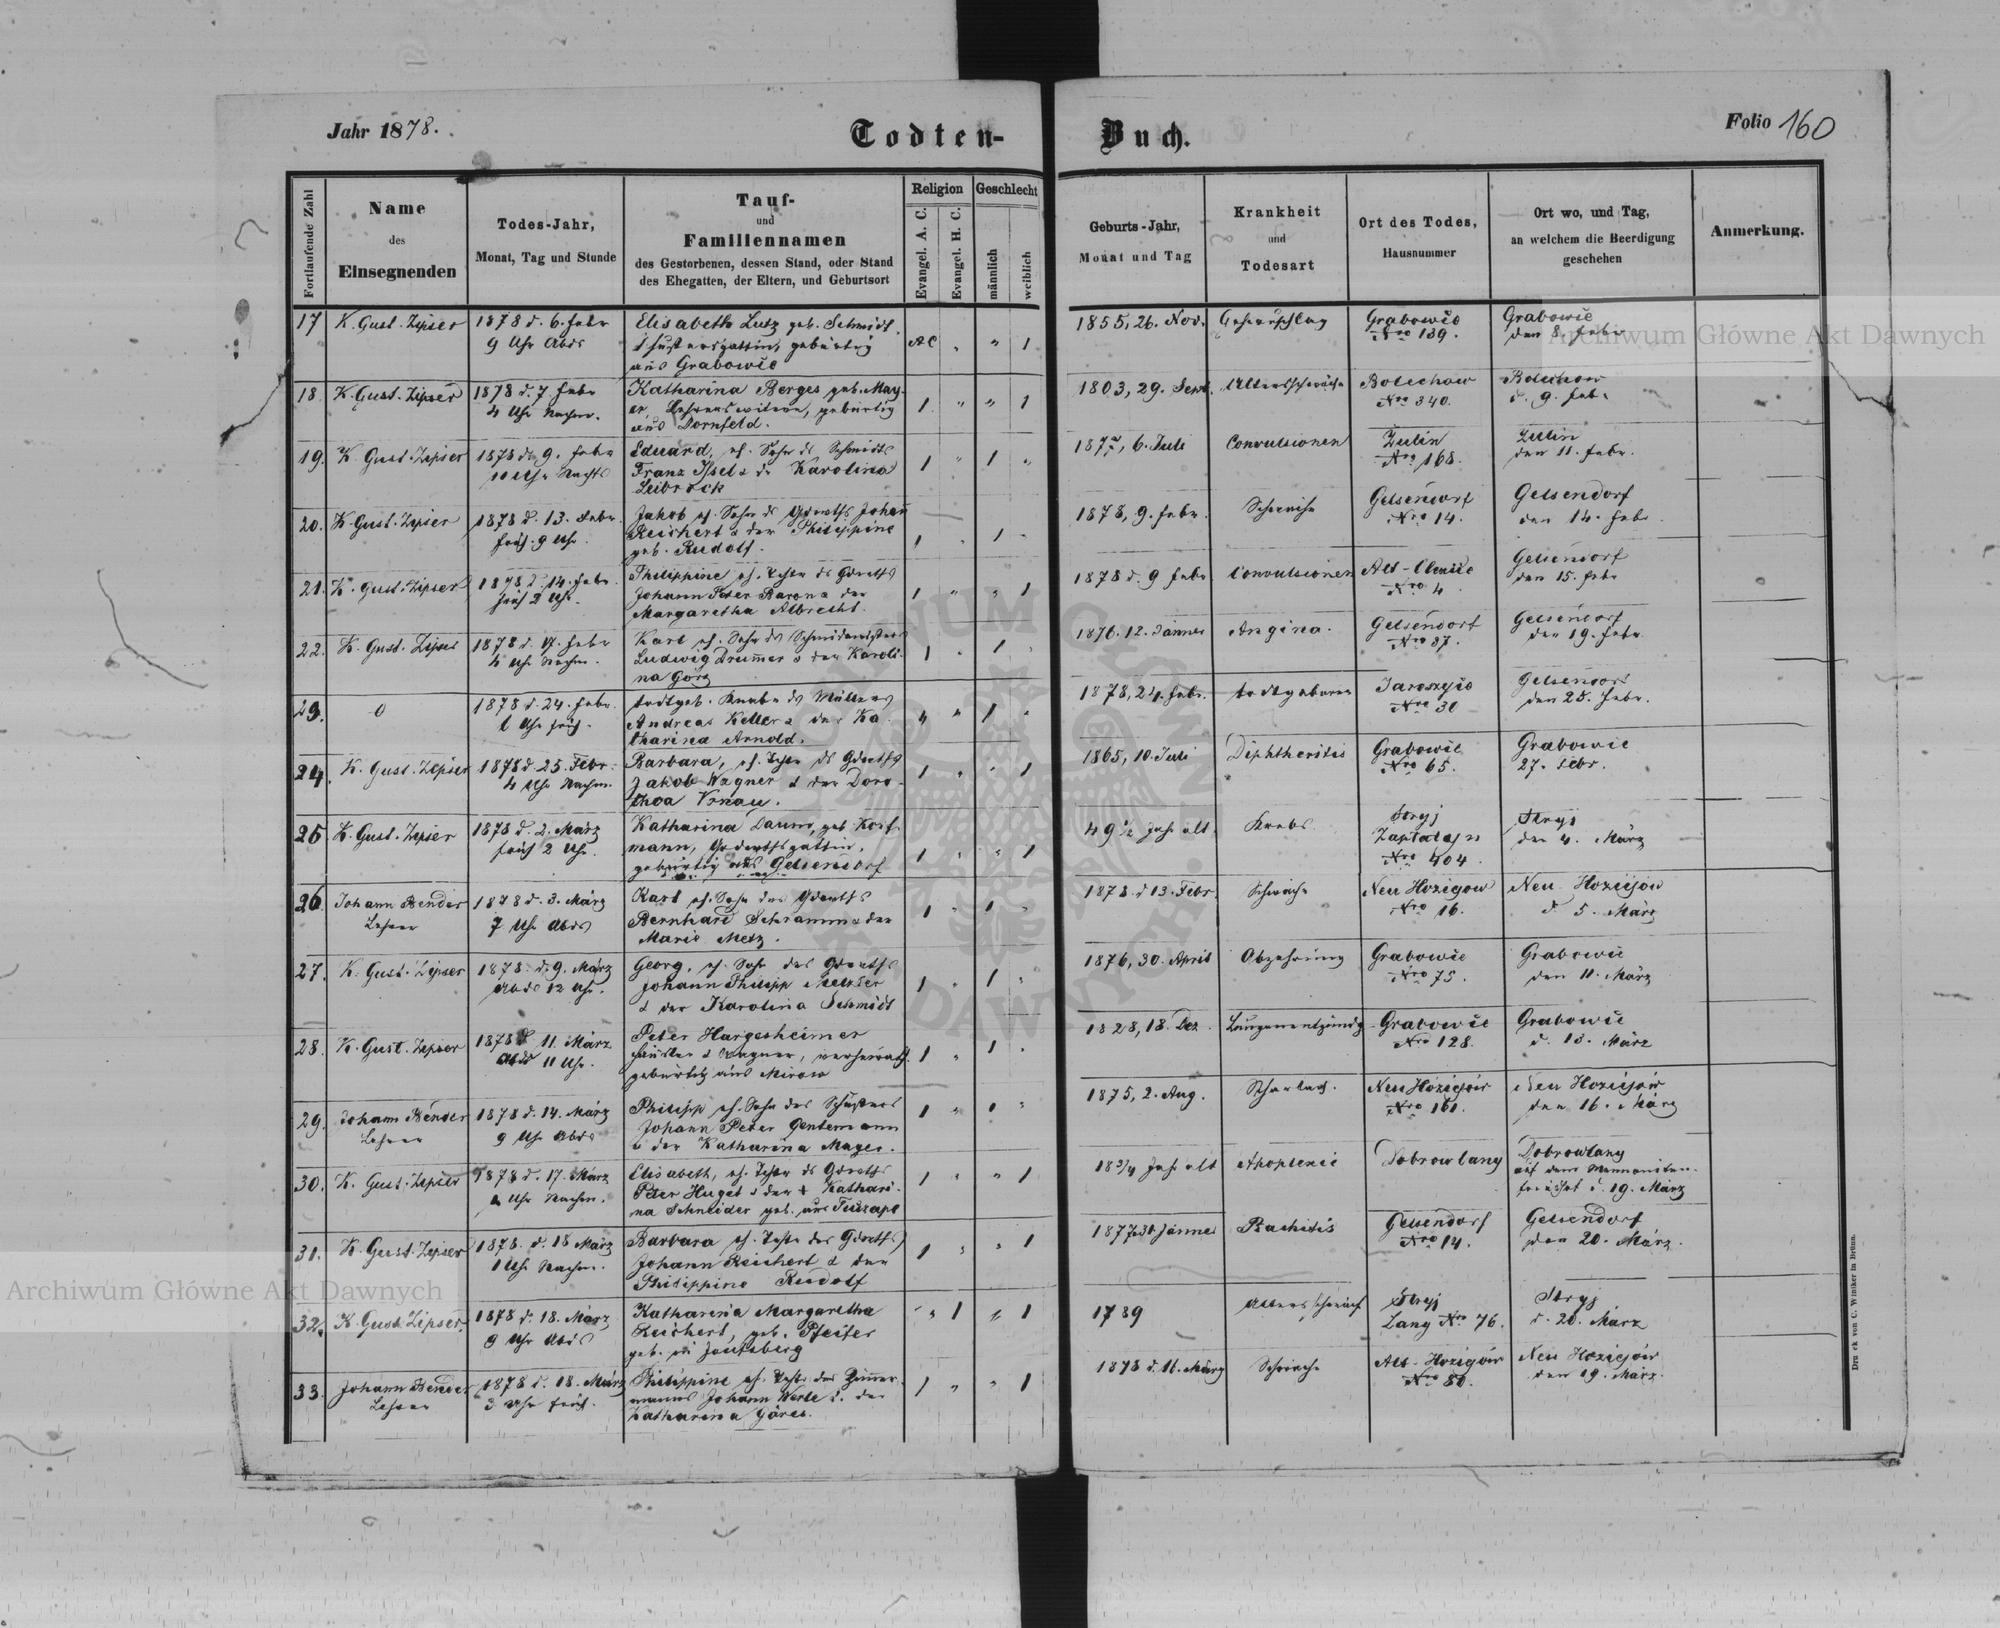 Jahr 1878.
Todten-Buch.
Folio 160
Fortlaufende Zahl
Name
des
Einsegnenden
Todes-Jahr,
Monat, Tag und Stunde
Tauf-
und
Familiennamen
des Gestorbenen, dessen Stand, oder Stand
des Ehegatten, der Eltern, und Geburtsort
Religion
Evangel. A. C.
Evangel. H. C.
Geschlecht
männlich
weiblich
Geburts-Jahr,
Monat und Tag
Krankheit
und
Todesart
Ort des Todes,
Hausnummer
Ort wo, und Tag,
an welchem die Beerdigung
geschehen
Anmerkung.
17 K. Gust. Zipser 1878 d. 6. Febr Elisabeth Lutz geb. Schmidt, 1855, 26. Nov. Grabowce Grabowce
9 Uhr Abds gebürtig AC " " 1 Nro 139. den 8. Febr
aus Grabowce
18. K. Gust. Zipser 1878 d. 7. Febr Katharina Berges geb. May- 1803, 29. Sept. Altersschwäche Bolechow Bolechow
4 Uhr Nachm. er, Lehrerswitwe, gebürtig 1 " " 1 Nro 340. d. 9. Feb.
aus Dornfeld.
19. K. Gust. Zipser 1878 d. 9. Febr Eduard, eh. Sohn ds Schmidts 6. Juli Convulsionen Zulin Zulin
10 Uhr Nachts Franz u dr Karolina 1 " 1 " Nro 168. den 11. Febr.
Leibrock
20. K. Gust. Zipser 1878 d. 13. Febr. Jakob eh. Sohn ds Johann 1878, 9. Febr. Schwäche Gelsendorf Gelsendorf
früh 9 Uhr. Reichert u der Philippine 1 " 1 " Nro 14. den 14. Febr
geb. Rudolf.
21. K. Gust. Zipser 1878 d. 14. Febr. Philippine eh. Tochter ds 1878 d. 9 Febr Convulsionen Gelsendorf
früh 2 Uhr. Johann Peter Baron u der 1 " " 1 Nro 4 den 15. Febr
Margaretha Albrecht.
22. K. Gust. Zipser 1878 d. 17. Febr Karl eh. Sohn ds Schmidmeisters 1876. 12. Jänner Angina. Gelsendorf Gelsendorf
4 Uhr Nachm. Ludwig Drumer u der Karoli- 1 " 1 " Nro 37. den 19. Febr
na Görz
23. 0 1878 d. 24. Febr. todtgeb. Knabe ds Müllers 1878, 24. Febr. todtgeboren Gelsendorf
1 Uhr früh. Andreas Keller u der Ka- " " 1 " Nro 30 den 25. Febr.
tharina Arnold.
24. K. Gust. Zipser 1878 d. 25. Febr. Barbara, eh. Tochter ds 1865, 10. Juli Diphtheritis Grabowce Grabowce
4 Uhr Nachm. Jakob Wagner u der Doro- 1 " " 1 Nro 65. 27. Febr.
thea
25 K. Gust. Zipser 1878 d. 2. März Katharina Daum, geb. Korf- 49 1/2 Jahr alt. Krebs Stryj Stryj
früh 2 Uhr. mann, 1 " " 1 den 4. März
gebürtig aus Gelsendorf Nro 404.
26. Johann Bender 1878 d. 3. März Karl eh. Sohn des 1878 d 13. Febr. Schwäche Neu Hozigow Neu Hoziejow
Lehrer 7 Uhr Abds Bernhard Schramm u der 1 " 1 " Nro 16. d. 5. März
Marie Metz.
27. K. Gust. Zipser 1878. d. 9. März Georg, eh. Sohn des 1876, 30. April Abzehrung Grabowce Grabowce
Abds 12 Uhr. Johann Philipp 1 " 1 " Nro 75. den 11. März
u der Karolina Schmidt
28. K. Gust. Zipser 1878 d. 11. März Peter Hargesheimer 1828, 18. Dez. Lungenentzündg Grabowce Grabowce
Abds 11 Uhr. Häusler u Wagner, verheirath. 1 " 1 " Nro 128. d. 13. März
gebürtig aus
29. Johann Bender 1878 d. 14. März Philipp eh. Sohn des Schusters 1875, 2. Aug. Scharlach. Neu Hoziejow Neu Hoziejow
Lehrer 9 Uhr Abds Johann Peter Gentemann 1 " 1 " Nro 161. den 16. März
u der Katharina Mayer.
30. K. Gust. Zipser 1878 d. 17. März Elisabeth, eh. Tochter ds 18 3/4 Jahr alt Apoplexie Dobrowlany Dobrowlany
Uhr Nachm. Peter Hugel u der Kathari- 1 " " 1 auf dem Mennoniten-
na Schneider geb. friedhof d. 19. März
31. K. Gust. Zipser 1878. d. 18 März Barbara eh. Tochter des 1877, 30. Jänner Rachitis Gelsendorf Gelsendorf
1 Uhr Nachm. Johann Reichert u der 1 " " 1 Nro 14. den 20. März.
Philippine Rudolf
32. K. Gust. Zipser. 1878 d. 18. März Katharina Margaretha 1789 Altersschwäch Stryj Stryj
9 Uhr Abds Reichert, geb. Pfeifer " 1 " 1 Lany Nro 76. d. 20. März
geb.
33. Johann Bender 1878 d. 18. März Philippine eh. Tochter des Zimmer- 1878 d. 16. März Schwäche Alt-Hozigow Neu Hoziejow
Lehrer 3 Uhr früh. manns Johann Werle u. der 1 " " 1 Nro 80. den 19. März.
Katharina
Druck von C. Winiker in Brünn.
Archiwum Główne Akt Dawnych
Archiwum Główne Akt Dawnych
ARCHIWUM GŁÓWNE AKT DAWNYCH